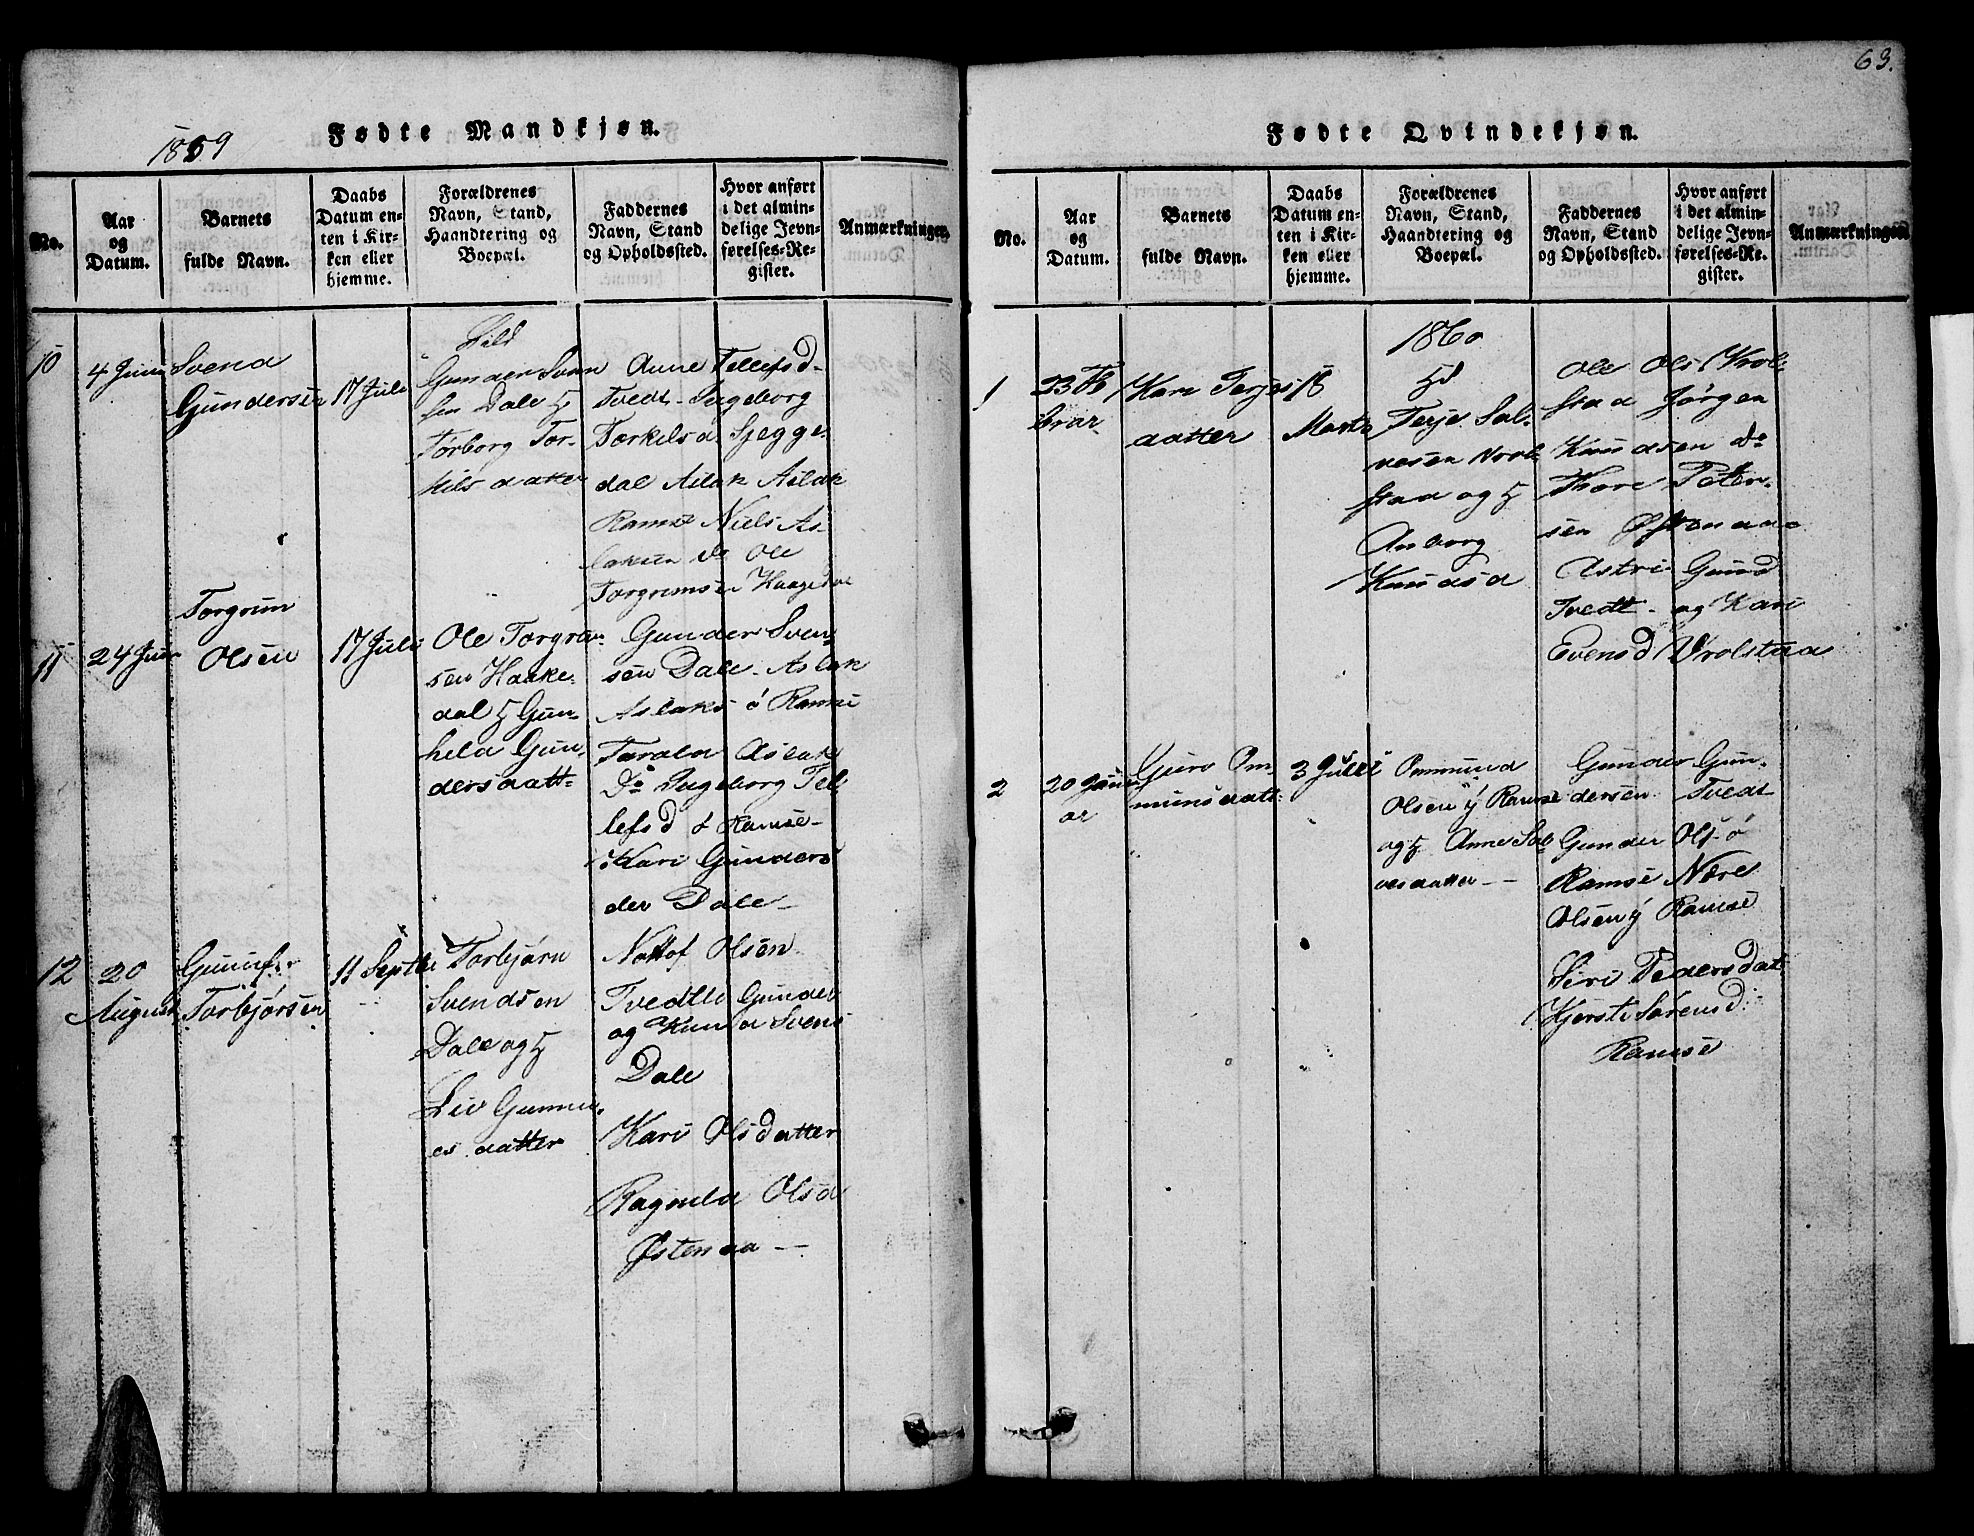 63.
1859
Fødte Mandkjøn.
No.
Aar
og
Datum.
Barnets
fulde Navn.
Daabs
Datum en-
ten i Kir-
ken eller
hjemme.
Forældrenes
Navn, Stand,
Haandtering og
Boepæl.
Faddernes
Navn, Stand
og Opholdssted.
Hvor anført
i det almin-
delige Jevn-
førelses-Re-
gister.
Anmærkninger.
10
4 Juni
Svend
Gundersen
17 Juli
Gunder Svend
sen Dale
Torborg Tor-
kilsdatter
Anne Tellefsd-
Tvedt - Ingeborg
Torkilsd Sjegge-
dal Aslak Aslak
Ramse Niels As-
laksen do Ole
Torgrimsen Haagedal
11
24 Juni
Torgrim
Olsen
17 Juli
Ole Torgrim
sen Haake-
dal Gun-
hild Gun-
dersdatt-
Gunder Sven
sen Dale - Aslak
Aslaks ö Ramse
Tarald Aslak
Do Ingeborg Tel
lefsd ö Ramse -
Kari Gunders
der Dale -
12
20
August
Gunuf
Torbjørsen
11 Septbr
Torbjørn
Svendsen
Dale og
Liv Gunnu
es datter
Nottof Olsen
Tvedtli Gunder
og Knud Svens
Dale
Kari Olsdatter
Ragnild Olsd
Østenaa -
Fødte Qvindekjøn.
No.
Aar
og
Datum.
Barnets
fulde Navn.
Daabs
Datum en-
ten i Kir-
ken eller
hjemme.
Forældrenes
Navn, Stand,
Haandtering og
Boepæl.
Faddernes
Navn, Stand
og Opholdssted.
Hvor anført
i det almin-
delige Jevn-
førelses-Re-
gister.
Anmærkninger.
1860
1
23 Fe
brar
Kari Terjes
datter
18
Marts
Terje Sal-
vesen Vrol-
stad og
Anborg
Knudsd
Ole Ols Vrol-
stad Jørgen
Knudsen do
Thore Peter-
sen Østenaa
Astri Gund
Tvedt - og Kari
Evensd Vrolstad
2
20 Janu
ar
Guro Om-
munsdatt.
3 Juli
Ommund
Olsen y Ramse
og Anne Sal
vesdatter -
Gunder Gun-
dersen Tvedt
Gunder Ols ö
Ramse Nære
Olsen y Ramse
Siri Pedersdat
Kjersti Sørensd.
Ramse